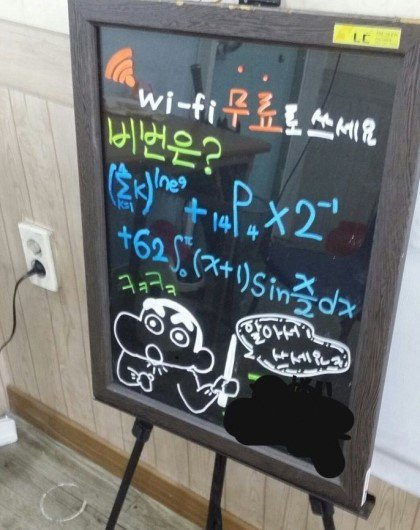 LC
wi-fi 무료로 쓰세요
비번은?
(∑ₖ₌₁⁴ K)^lne⁹ + ₁₄P₄ × 2⁻¹
+62∫₀^π (x+1) Sin x/2 dx
ㅋㅋㅋㅋ
알아서
쓰세요